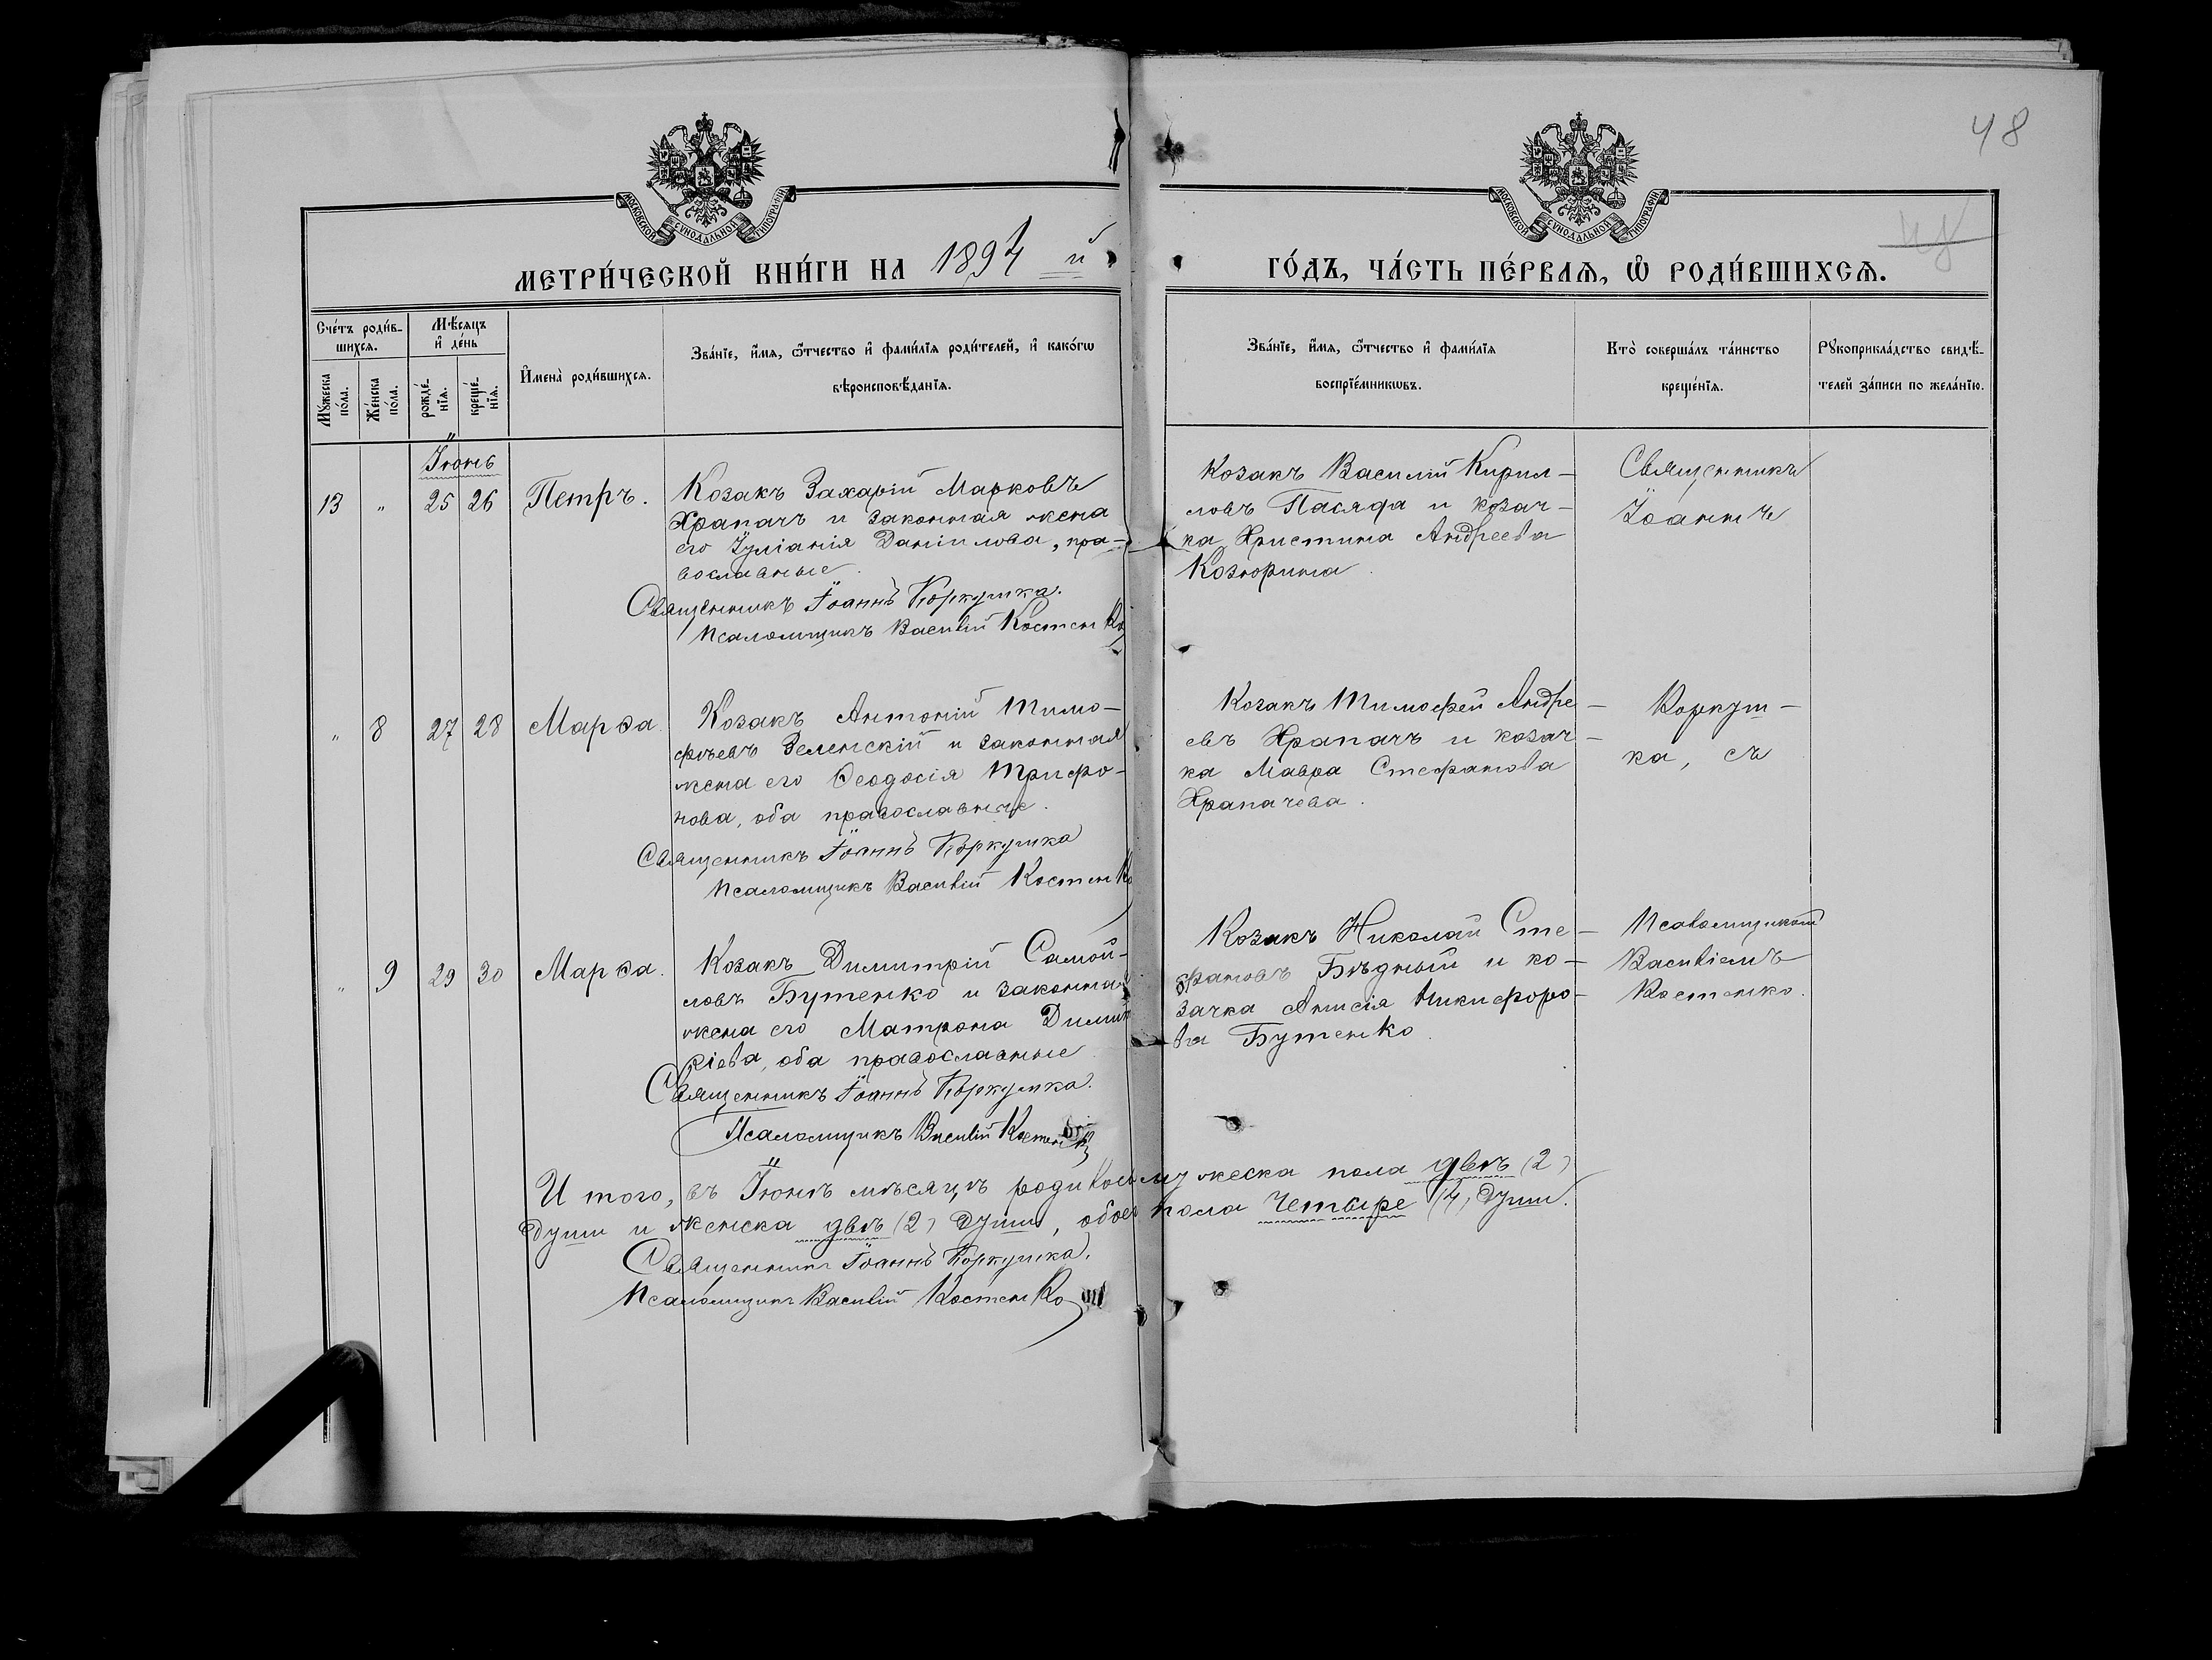 48
48
МОСКОВСКОЙ СѴНОДАЛЬНОЙ ТИПОГРАФІИ
МОСКОВСКОЙ СѴНОДАЛЬНОЙ ТИПОГРАФІИ
МЕТРИ́ЧЕСКОЙ КНИ́ГИ НА 1894 й
ГО́ДЪ, ЧА́СТЬ ПЕ́РВАѦ, Ѡ҆ РОДИ́ВШИХСѦ.
Сче́тъ роди́в-
шихсѧ.
Мꙋ́жеска
по́ла.
Же́нска
по́ла.
Мѣ́сѧцъ
и҆ де́нь
рожде́-
нїѧ.
креще́-
нїѧ.
И҆мена̀ роди́вшихсѧ.
Зва́нїе, и҆́мѧ, ѻ҆́тчество и҆ фами́лїѧ роди́телей, и҆ како́гѡ
вѣроисповѣ́данїѧ.
Зва́нїе, и҆́мѧ, ѻ҆́тчество и҆ фами́лїѧ
воспрїе́мникѡвъ.
Кто̀ соверша́лъ та́инство
креще́нїѧ.
Рꙋкоприкла́дство свидѣ́-
телей за́писи по жела́нїю.
Іюнь
13 " 25 26 Петръ.
Козакъ Захарій Марковъ
Храпачъ и законная жена
его Іуліанія Даніилова, пра-
вославные.
Священникъ Іоаннъ Коркушка.
Псаломщикъ Василій Костенко
Козакъ Василій Кирил-
ловъ Пасяда и козач-
ка Христина Андреева
Козюрина.
Священникъ
Іоаннъ
" 8 27 28 Марѳа.
Козакъ Антоній Тимо-
фѣевъ Зеленскій и законная
жена его Ѳеодосія Трифо-
нова, оба православные.
Священникъ Іоаннъ Коркушка
Псаломщикъ Василій Костенко
Козакъ Тимофей Андре-
евъ Храпачъ и козач-
ка Мавра Стефанова
Храпачева.
Коркуш-
ка, съ
" 9 29 30 Марѳа.
Козакъ Димитрій Самой-
ловъ Бутенко и законная
жена его Матрона Димит
ріева, оба православные.
Священникъ Іоаннъ Коркушка.
Псаломщикъ Василій Костенко
Козакъ Николай Сте-
фановъ Бѣдный и ко-
зачка Анисія Никифоро-
ва Бутенко
Псаломщикомъ
Василіемъ
Костенко.
И того, въ Іюнѣ мѣсяцѣ родилось мужеска пола двѣ (2)
души и женска двѣ (2) души, обоего пола четыре (4) души.
Священникъ Іоаннъ Коркушка.
Псаломщикъ Василій Костенко